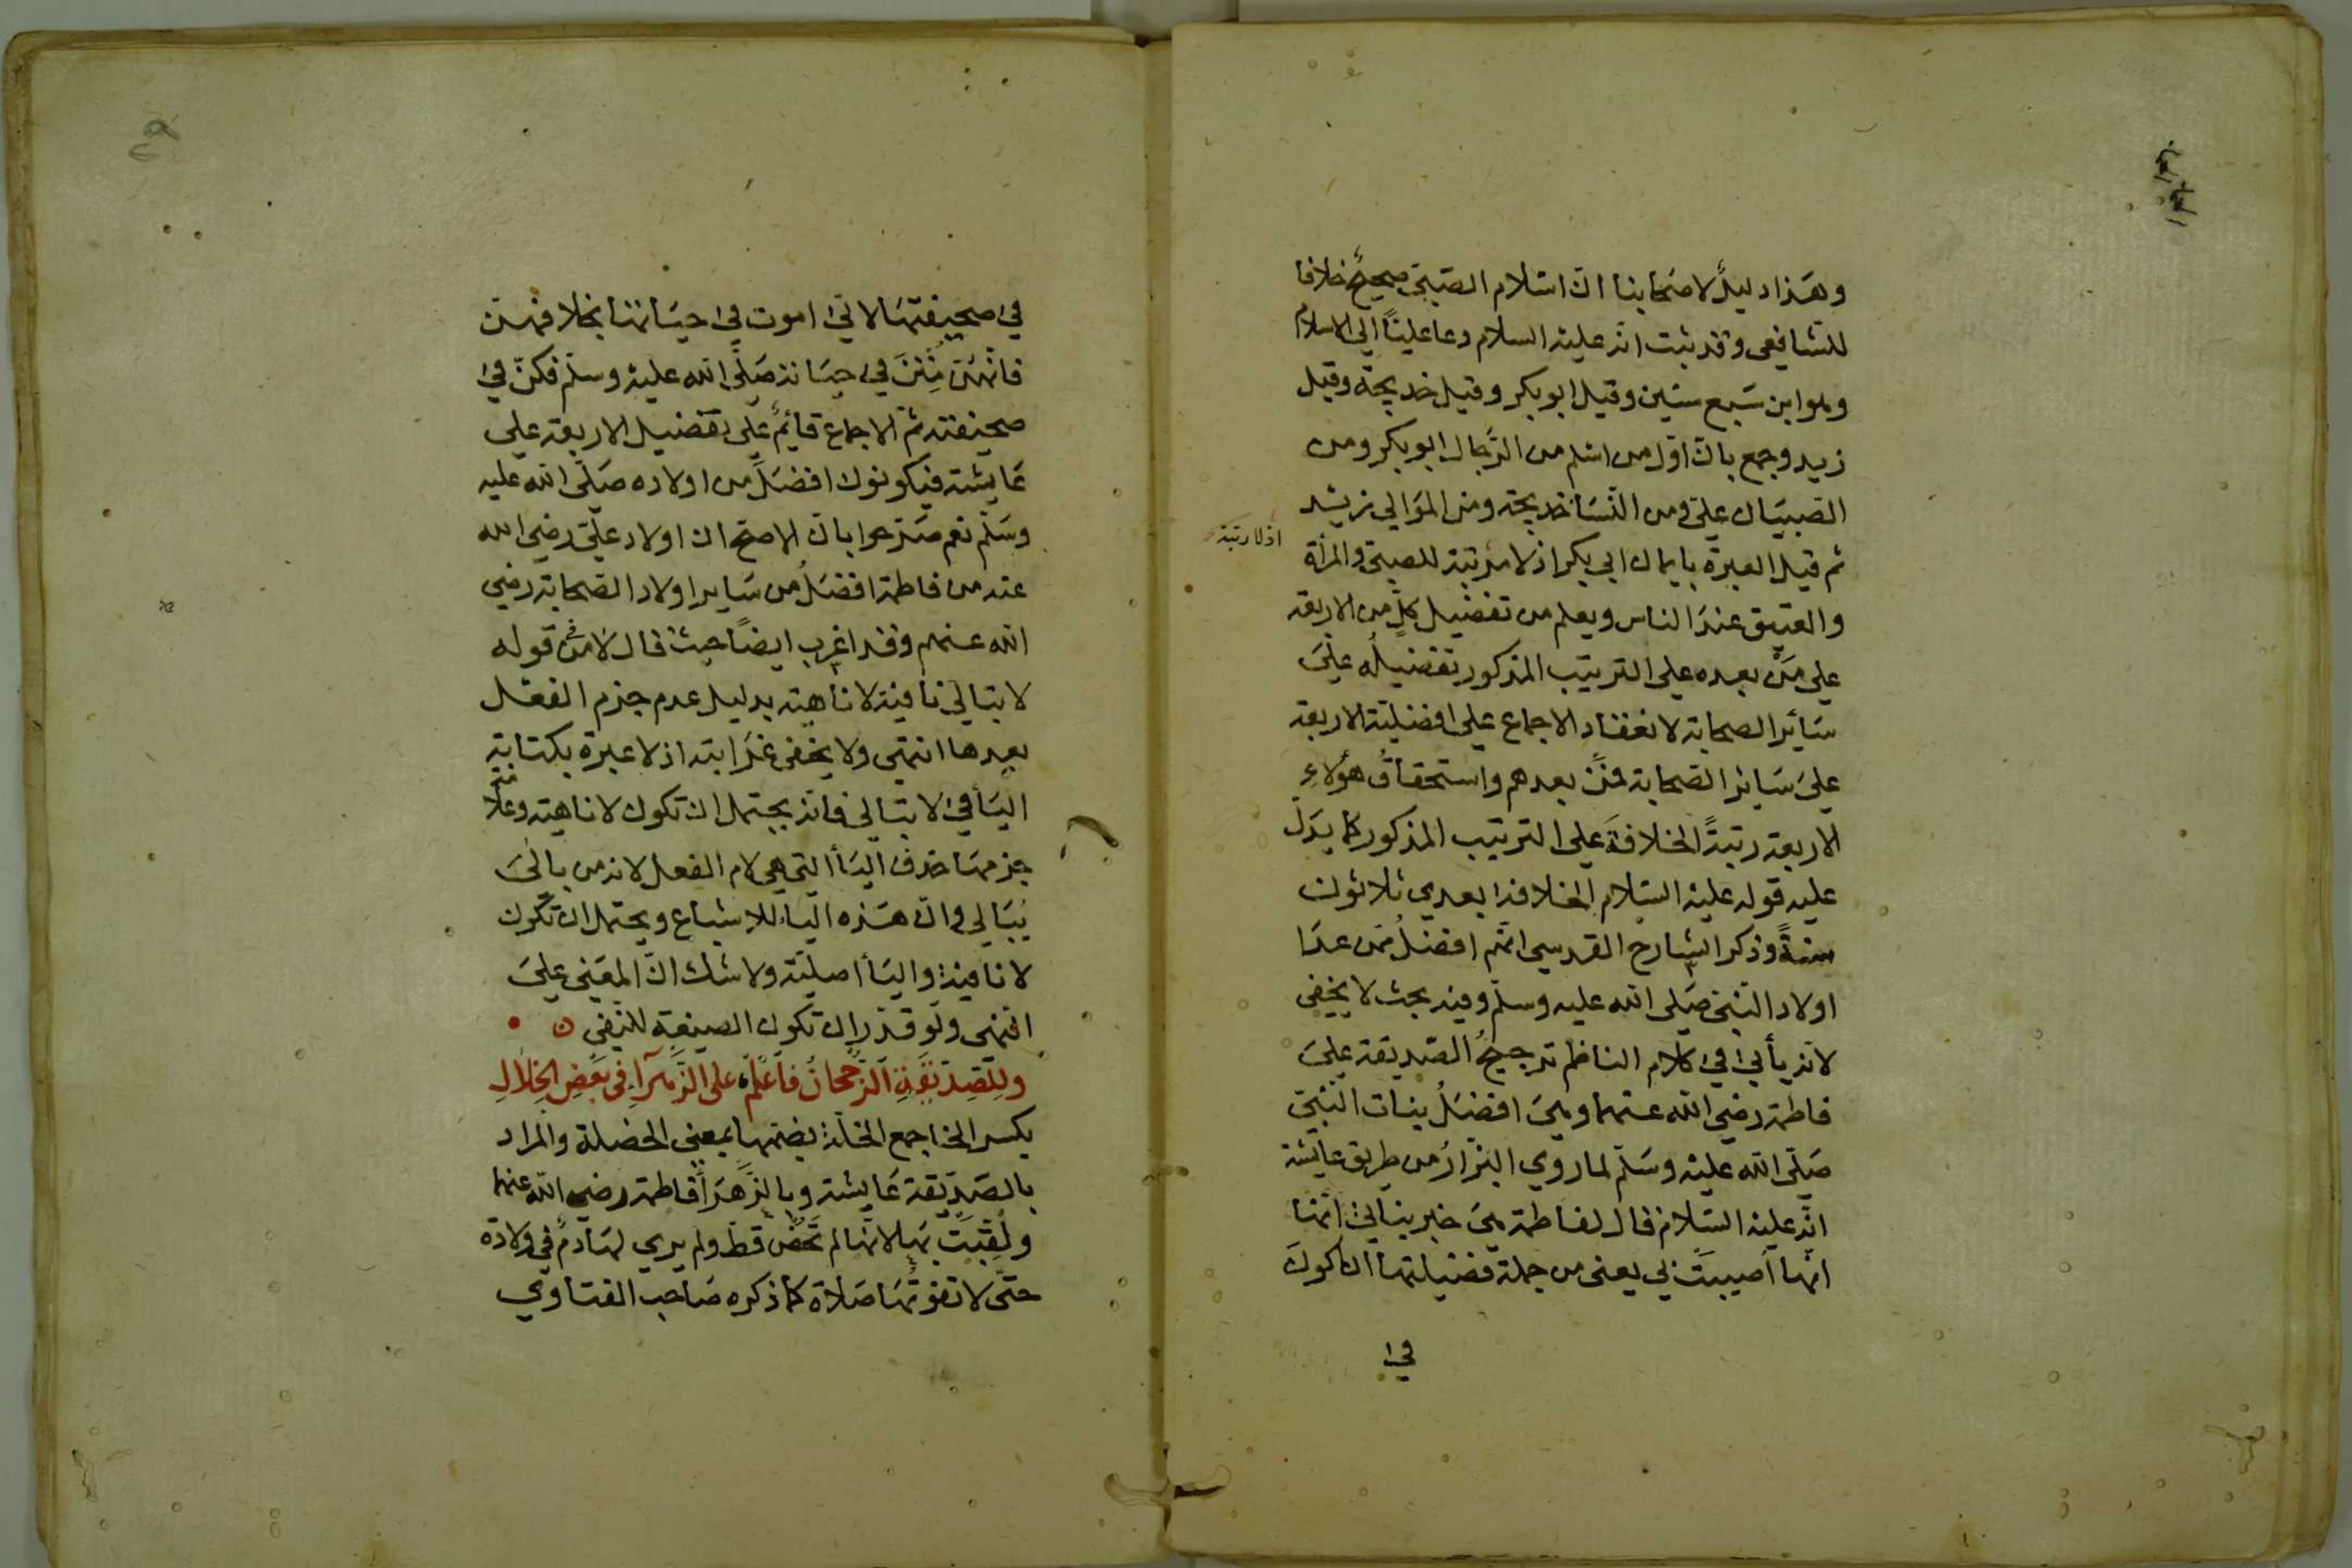 وهذا دليل لاصحابنا ان اسلام الصبي صحيح خلافا
للشافعي وقد ثبت انه عليه السلام دعا عليًا الي الاسلام
وهو ابن سبع سنين وقيل ابو بكر وقيل خديجة وقيل
زيد وجمع بان اول من اسلم من الرجال ابو بكر ومن
الصبيان علي ومن النسا خديجة ومن الموالي زيد
ثم قيل العبرة بايمان ابي بكر اذ لا مرتبة للصبي والمرأة
اذ لا رتبة
والعتيق عند الناس ويعلم من تفضيل كلٍ من الاربعة
علي من بعده علي الترتيب المذكور تفضيله علي
سائر الصحابة لانعقاد الاجماع علي افضلية الاربعة
علي سائر الصحابة فمن بعدهم واستحقاق هؤلاء
الاربعة رتبة الخلافة علي الترتيب المذكور كما يدل
عليه قوله عليه السلام الخلافة بعدي ثلاثون
سنةً وذكر الشارح القدسي انهم افضل ممن عدا
اولاد النبي صلى الله عليه وسلم وفيه بحث لا يخفى
لانه يأتي في كلام الناظم ترجيح الصديقة علي
فاطمة رضي الله عنهما وهي افضل بنات النبي
صلى الله عليه وسلم لما روي البزار من طريق عايشة
انه عليه السلام قال لفاطمة هي خير بناتي انها
انها اصيبت بي يعني من جملة فضيلتها ان اكون
في
في صحيفتها لاني اموت في حياتها بخلافهن
فانهن متن في حياته صلى الله عليه وسلم فكن في
صحيفته ثم الاجماع قائم علي تفضيل الاربعة علي
عايشة فيكونون افضل من اولاده صلى الله عليه
وسلم نعم صرحوا بان الاصح ان اولاد علي رضي الله
عنه من فاطمة افضل من ساير اولاد الصحابة رضي
الله عنهم وقد اغرب ايضًا حيث قال لا من قوله
لا تبالي نافية لا ناهية بدليل عدم جزم الفعل
بعدها انتهى ولا يخفى غرابته اذ لا عبرة بكتابة
اليأ في لا تبالي فانه يحتمل ان تكون لا ناهية وعلامة
جزمها حذف اليأ التي هي لام الفعل لانه من بالي
يبالي وان هذه الياء للاشباع ويحتمل ان تكون
لا نافية واليأ اصلية ولا شك ان المعني علي
النهى ولو قدر ان تكون الصيغة للنفي ن
وللصديقة الرجحان فاعلم على الزهرا في بعض الخلال
بكسر الخا جمع الخلة بضمها بمعنى الخصلة والمراد
بالصديقة عايشة وبالزهرأ فاطمة رضي الله عنهما
ولقبت بها لانها لم تحض قط ولم يري لها دم في ولادة
حتى لا تفوتها صلاة كما ذكره صاحب الفتاوي